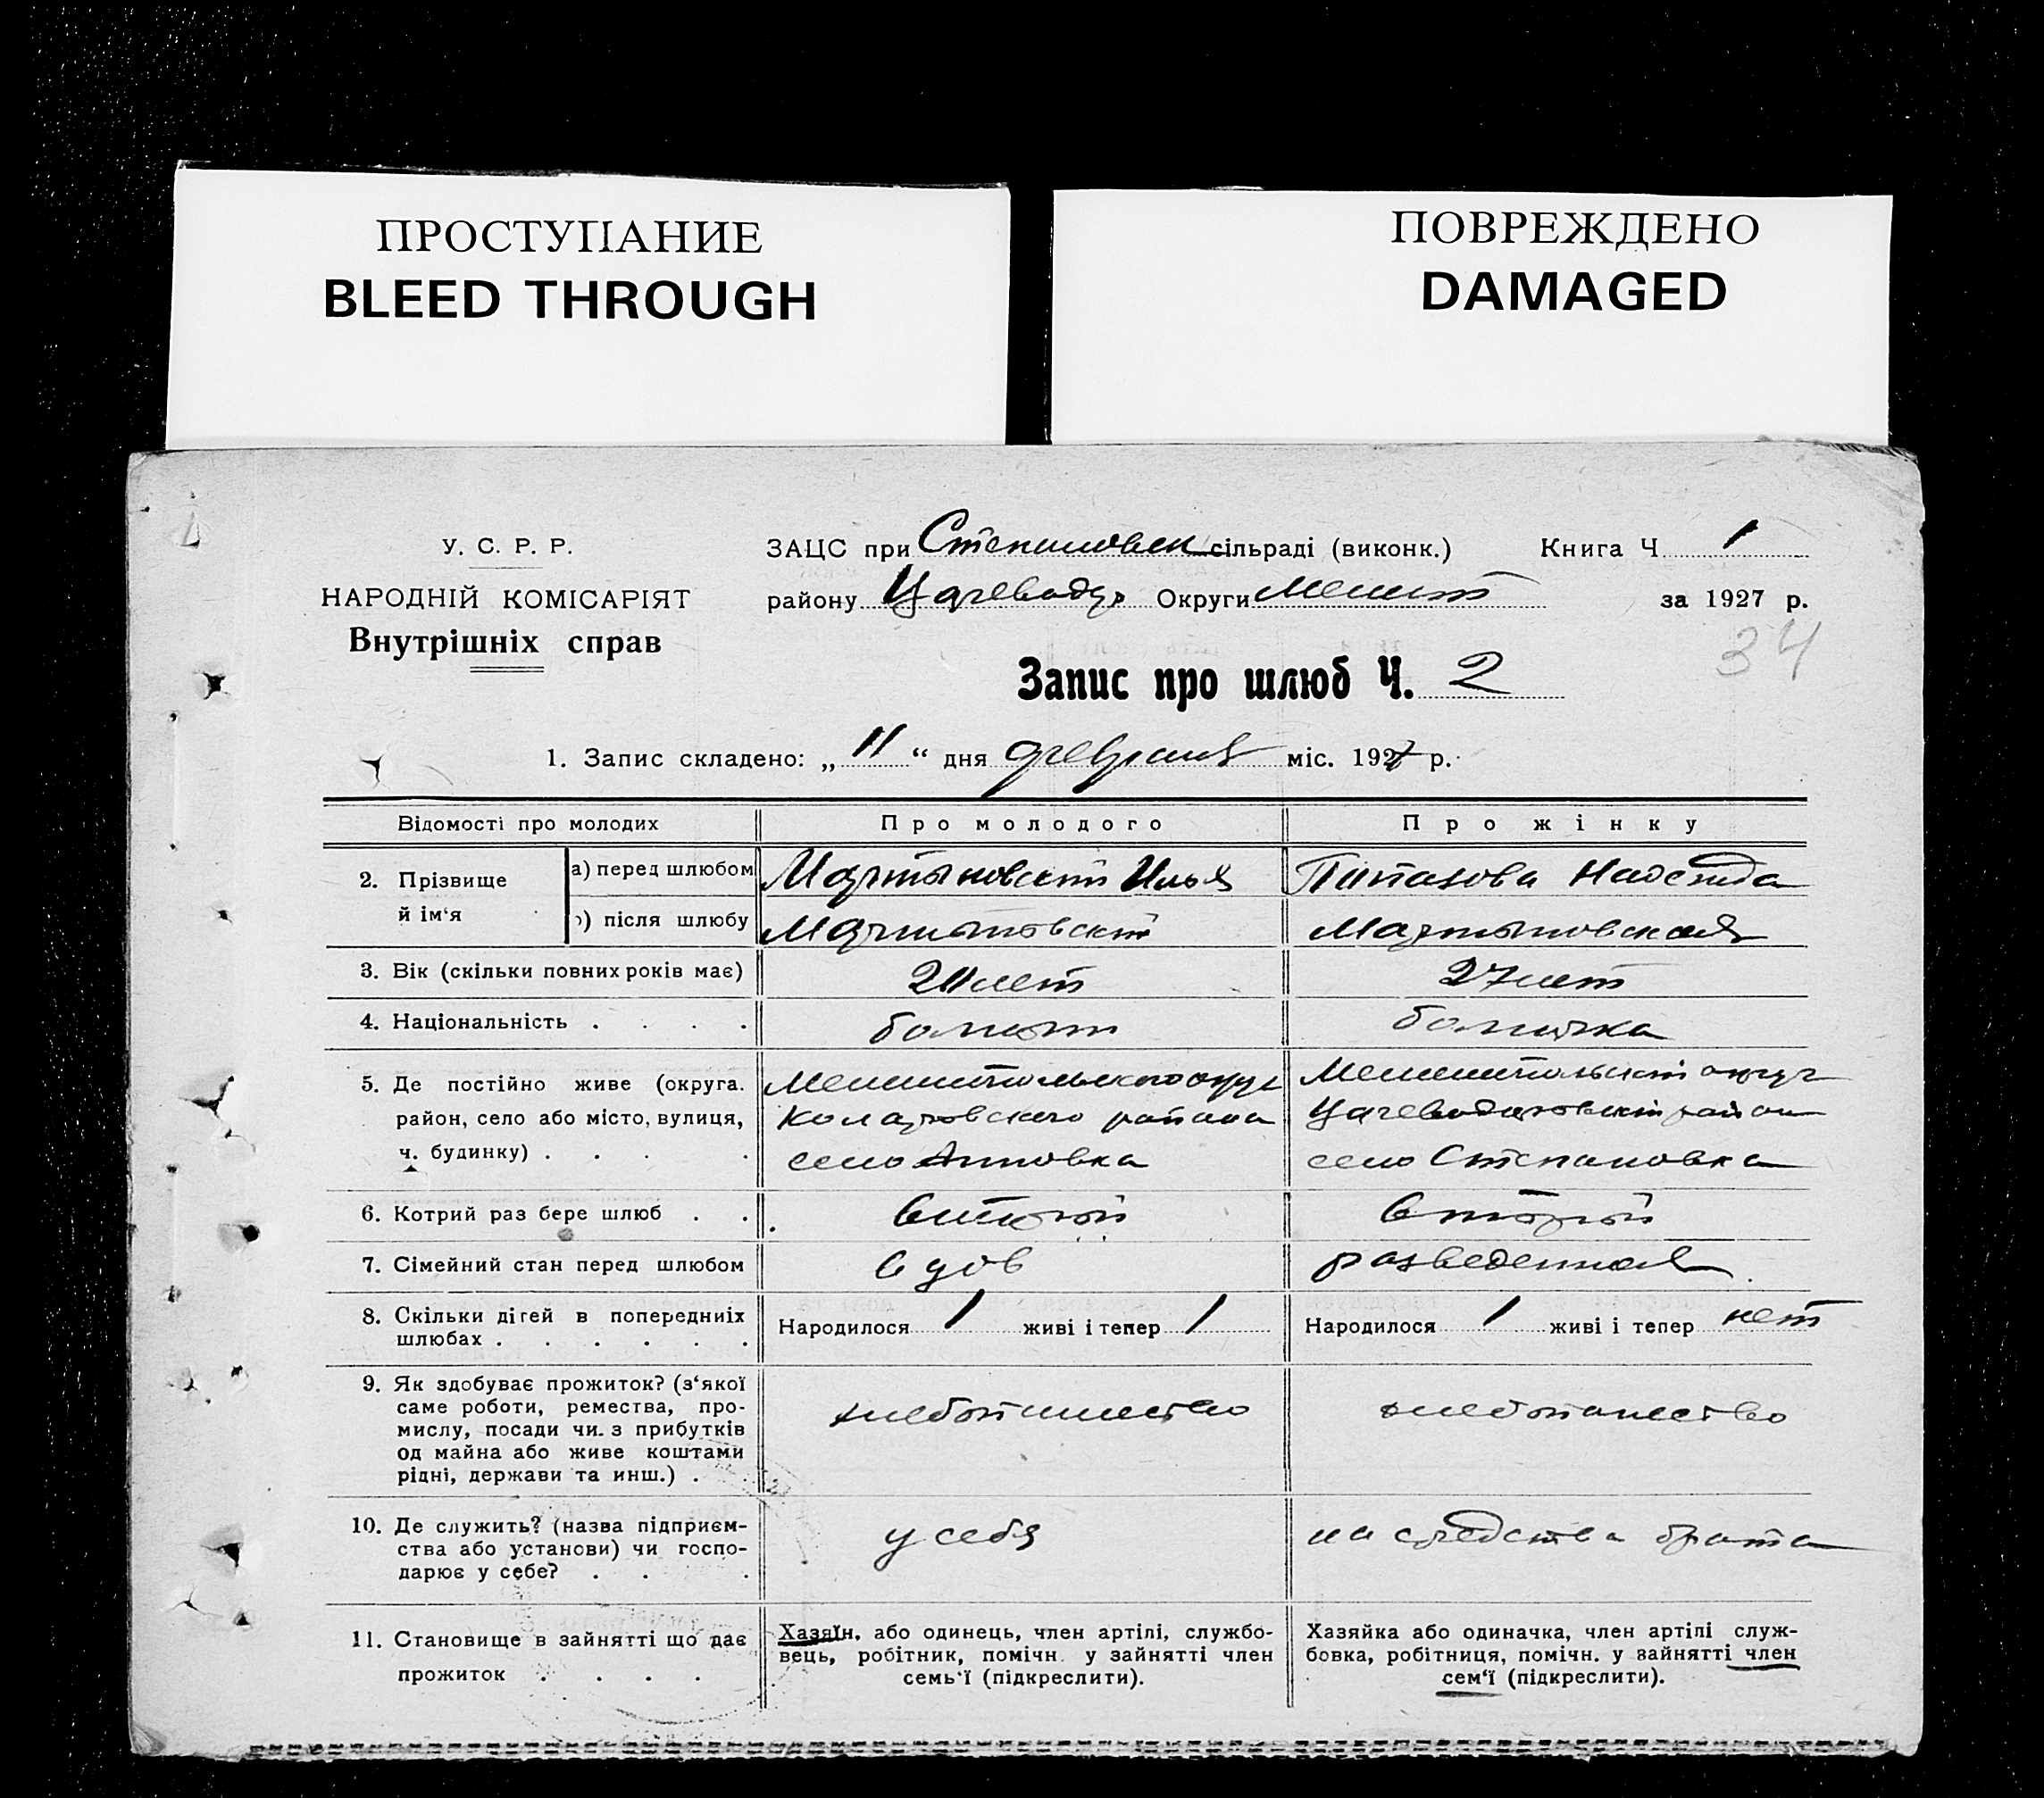 ПРОСТУПАНИЕ
BLEED THROUGH
ПОВРЕЖДЕНО
DAMAGED
У. С. Р. Р.
НАРОДНІЙ КОМІСАРІЯТ
Внутрішніх справ
ЗАЦС при Степановск сільраді (виконк.) Книга Ч 1
району Цареводар Округи Мелит за 1927 р.
34
Запис про шлюб Ч. 2
1. Запис складено: „ 11 “ дня февраля міс. 1927 р.
Відомості про молодих Про молодого Про жінку
2. Прізвище й ім‘я
а) перед шлюбом Мартыновский Илья Надежда
б) після шлюбу Мартыновский Мартыновская
3. Вік (скільки повних років має) лет 27 лет
4. Національність . . . . болгарка
5. Де постійно живе (округа. район, село або місто, вулиця, ч. будинку) . . . .
Мелитопольского округ
Коларовского района
село Анновка
Мелитопольский округ
Цареводаровский район
село Степановка
6. Котрий раз бере шлюб . . второй второй
7. Сімейний стан перед шлюбом вдов разведенная
8. Скільки дітей в попередниіх шлюбах . . . . . .
Народилося 1 живі і тепер 1
Народилося 1 живі і тепер нет
9. Як здобуває прожиток? (з‘якої
саме роботи, ремества, про-
мислу, посади чи. з прибутків
од майна або живе коштами
рідні, держави та инш.) .
хлебопашество хлебопашество
10. Де служить? (назва підприєм-
ства або установи) чи госпо-
дарює у себе? . . .
у себя на средства брата
11. Становище в зайнятті що дає
прожиток . . . .
Хазяїн, або одинець, член артілі, службо-
вець, робітник, помічн. у зайнятті член
семь‘ї (підкреслити).
Хазяйка або одиначка, член артілі служ-
бовка, робітниця, помічн. у зайнятті член
сем‘ї (підкреслити).